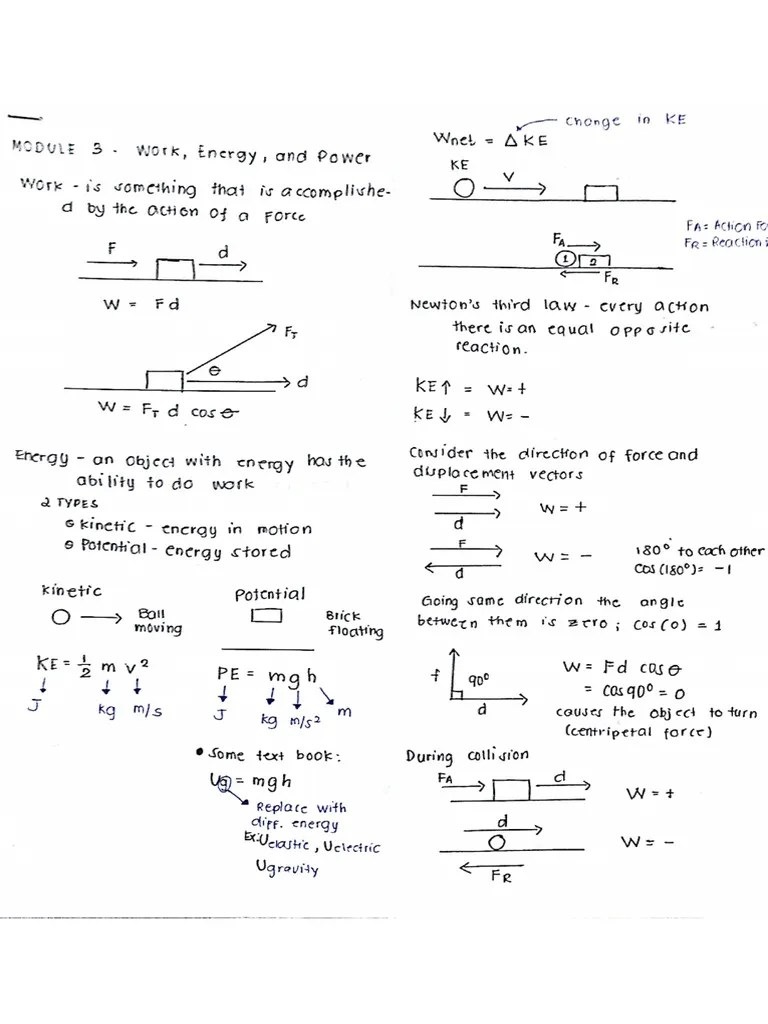 MODULE 3 - Work, Energy, and Power
Work - is something that is accomplishe-
d by the action of a Force
F
d
W = Fd
F_T
θ
d
W = F_T d cos θ
Energy - an object with energy has the
ability to do work
2 TYPES
kinetic - energy in motion
Potential - energy stored
kinetic
Ball
moving
KE = 1/2 m v²
↓ ↓ ↓
J kg m/s
Potential
Brick
floating
PE = mgh
↓ ↓ ↓ ↘
J kg m/s² m
• Some text book:
Ug = mgh
Replace with
diff. energy
Ex: Uelastic, Uelectric
Ugravity
change in KE
Wnet = Δ KE
KE
V
F_A = Action Fo
F_R = Reaction
F_A
1 2
F_R
Newton's third law - every action
there is an equal opposite
reaction.
KE ↑ = W = +
KE ↓ = W = -
Consider the direction of force and
displacement vectors
F
d
W = +
F
d
W = -
180° to each other
cos(180°) = -1
Going same direction the angle
between them is zero; cos(0) = 1
f
90°
d
W = Fd cos θ
= cos 90° = 0
causes the object to turn
(centripetal force)
During collision
F_A
d
W = +
d
W = -
F_R